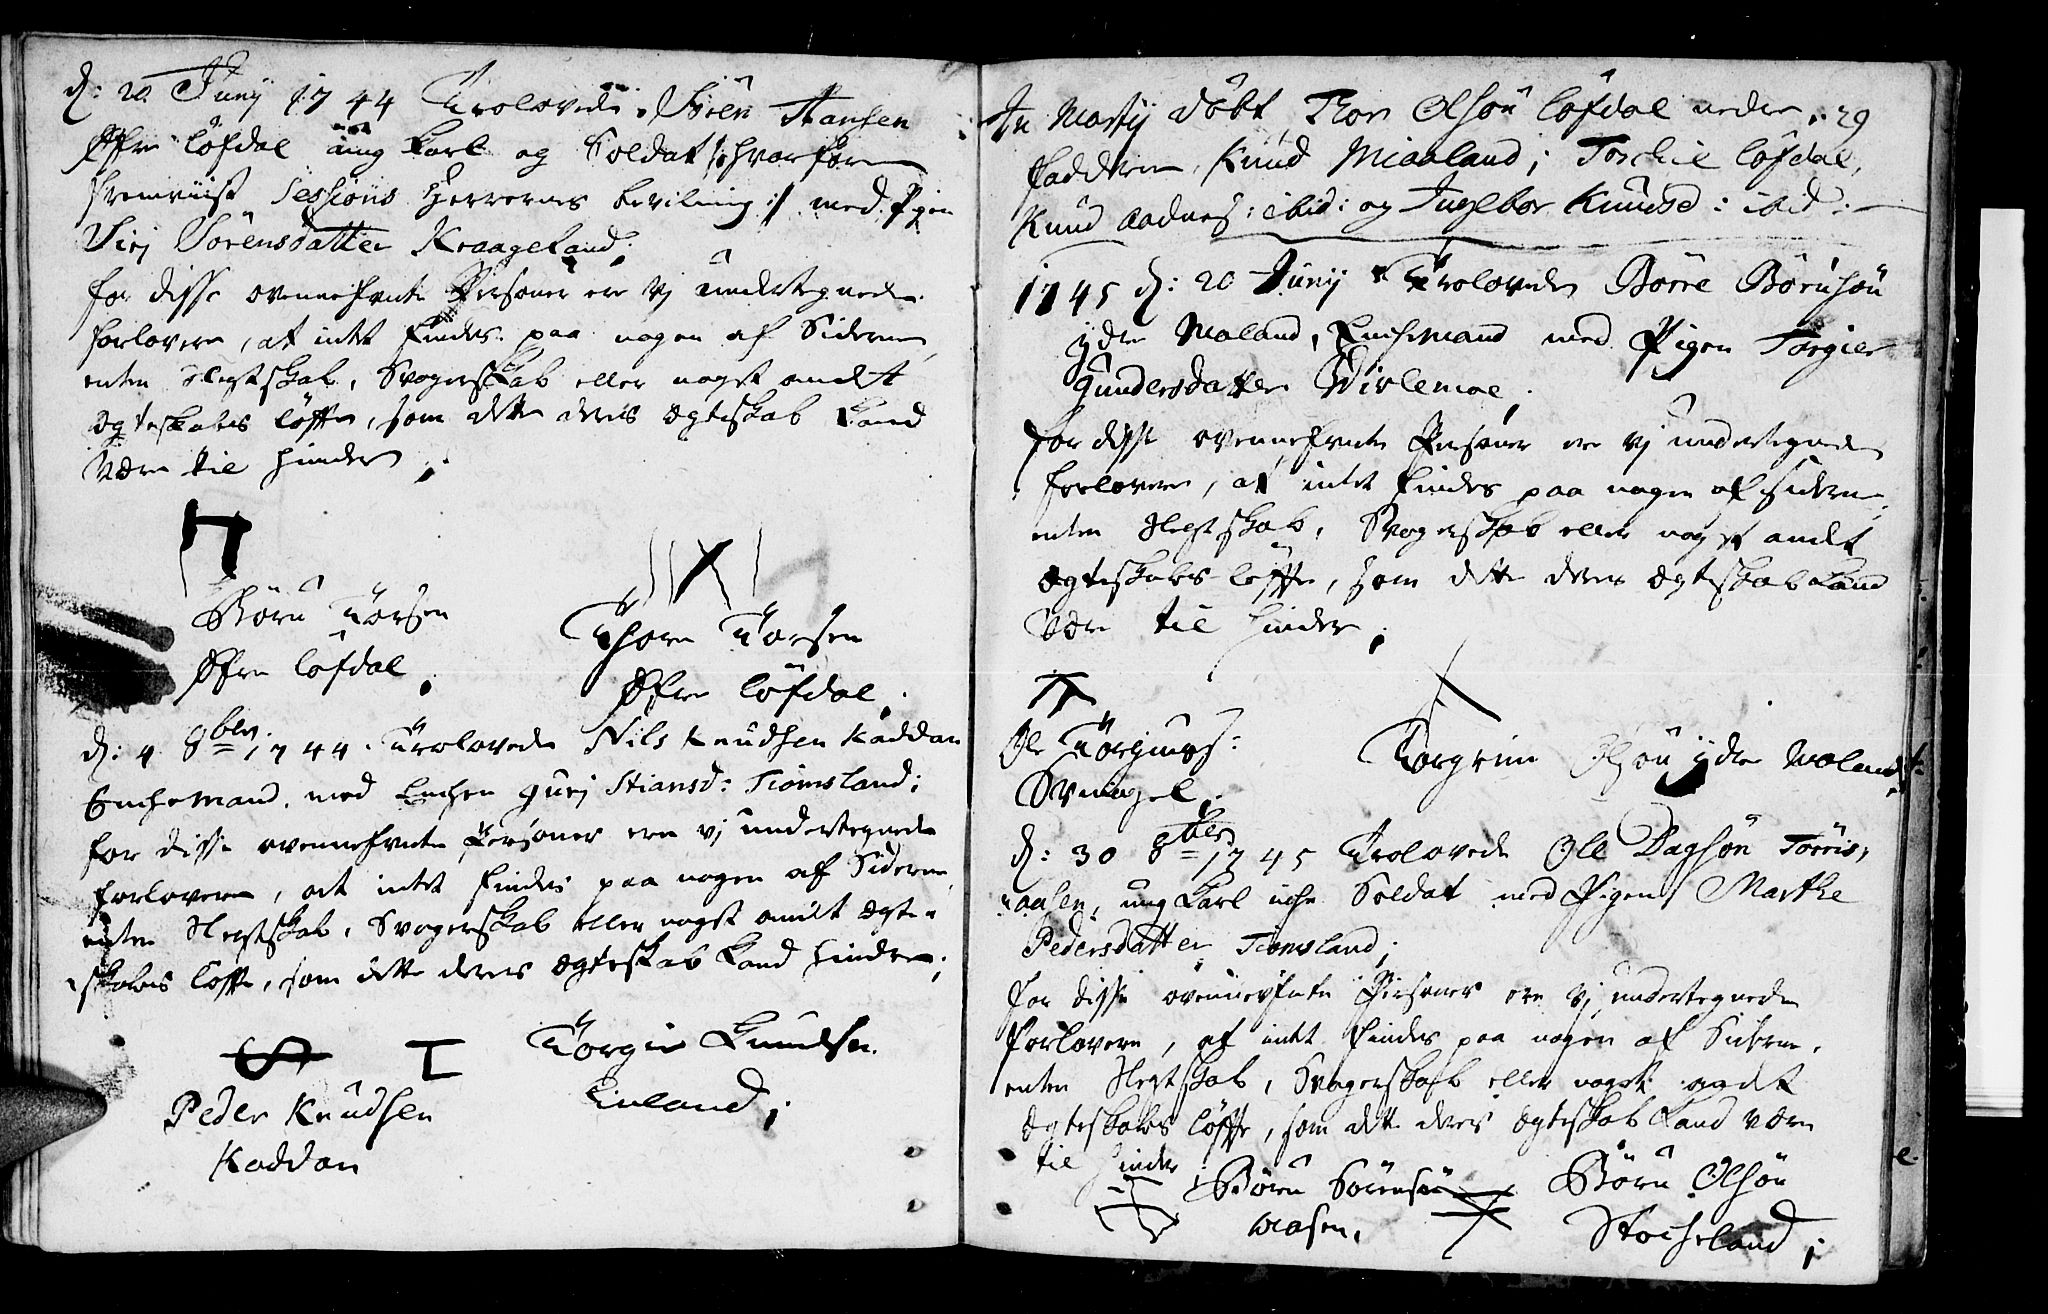 d: 20. Junij 1744 Trolovede Sören Hansen
Øfre löfdal ung Karl og Soldat |: hvorfore
fremviist Sessions Herrernes beviling :| med Pigen
Sirj Sörensdatter Kraageland;
for disse ovennefnte Persohner ere vj undertegnede
forlovere, at intet findes paa nogen af Siderne
enten Slegtskab, Svogerskab eller noget andet
Ægteskabs löffte, som dette deres Ægteskab kand
være til hinder;
Börn Torsen
Øfre lofdal;
Thore Torsen
Øfre löfdal;
d: 4 8bir. 1744. Trolovede Nils Knudsen Kaddan
Enchemand, med Enchen gurj Stiansd: Tiomsland;
for disse ovennefnte Persohner ere vj undertegnede
forlovere, at intet findes paa nogen af Siderne,
enten Slegtskab, Svogerskab eller noget andet Ægte-
skabs löffte, som dette deres Ægteskab kand hindre;
Torgie Knudsen
Peder Knudsen
Kaddan
29
In Martij döbt Thor Olson löfdal nedre
faddere, Knud Miaaland; Torchil löfdal,
Knud Aadnes: ibid: og Ingebor Knudsd: ibid:
1745 d: 20 Junij Trolovede Börre Börnsön
ydre Moland, Enchemand med Pigen Torgier
Gundersdatter Virlemoe;
for disse ovennefnte Persohner ere vj undertegnede
forlovere, at intet findes paa nogen af Siderne,
enten Slegtskab, Svogerskab eller noget andet
Ægteskabs löffte, som dette deres Ægteskab kand
være til hinder;
Ole Törgiuss:
Svinagel;
Torgrim Olson ydre Moland
d: 30 8ber 1745 Trolovede Ole Dagsön Torris-
aasen, ung Karl iche Soldat med Pigen Marthe
Pedersdatter Tiomsland;
for disse ovennefnte Persohner ere vj undertegnede
forlovere, at intet findes paa nogen af Siderne,
enten Slegtskab, Svogerskab eller noget andet
Ægteskabs löffte, som dette deres Ægteskab kand være
til hinder;
Börn Sörensön
Börn Olsön